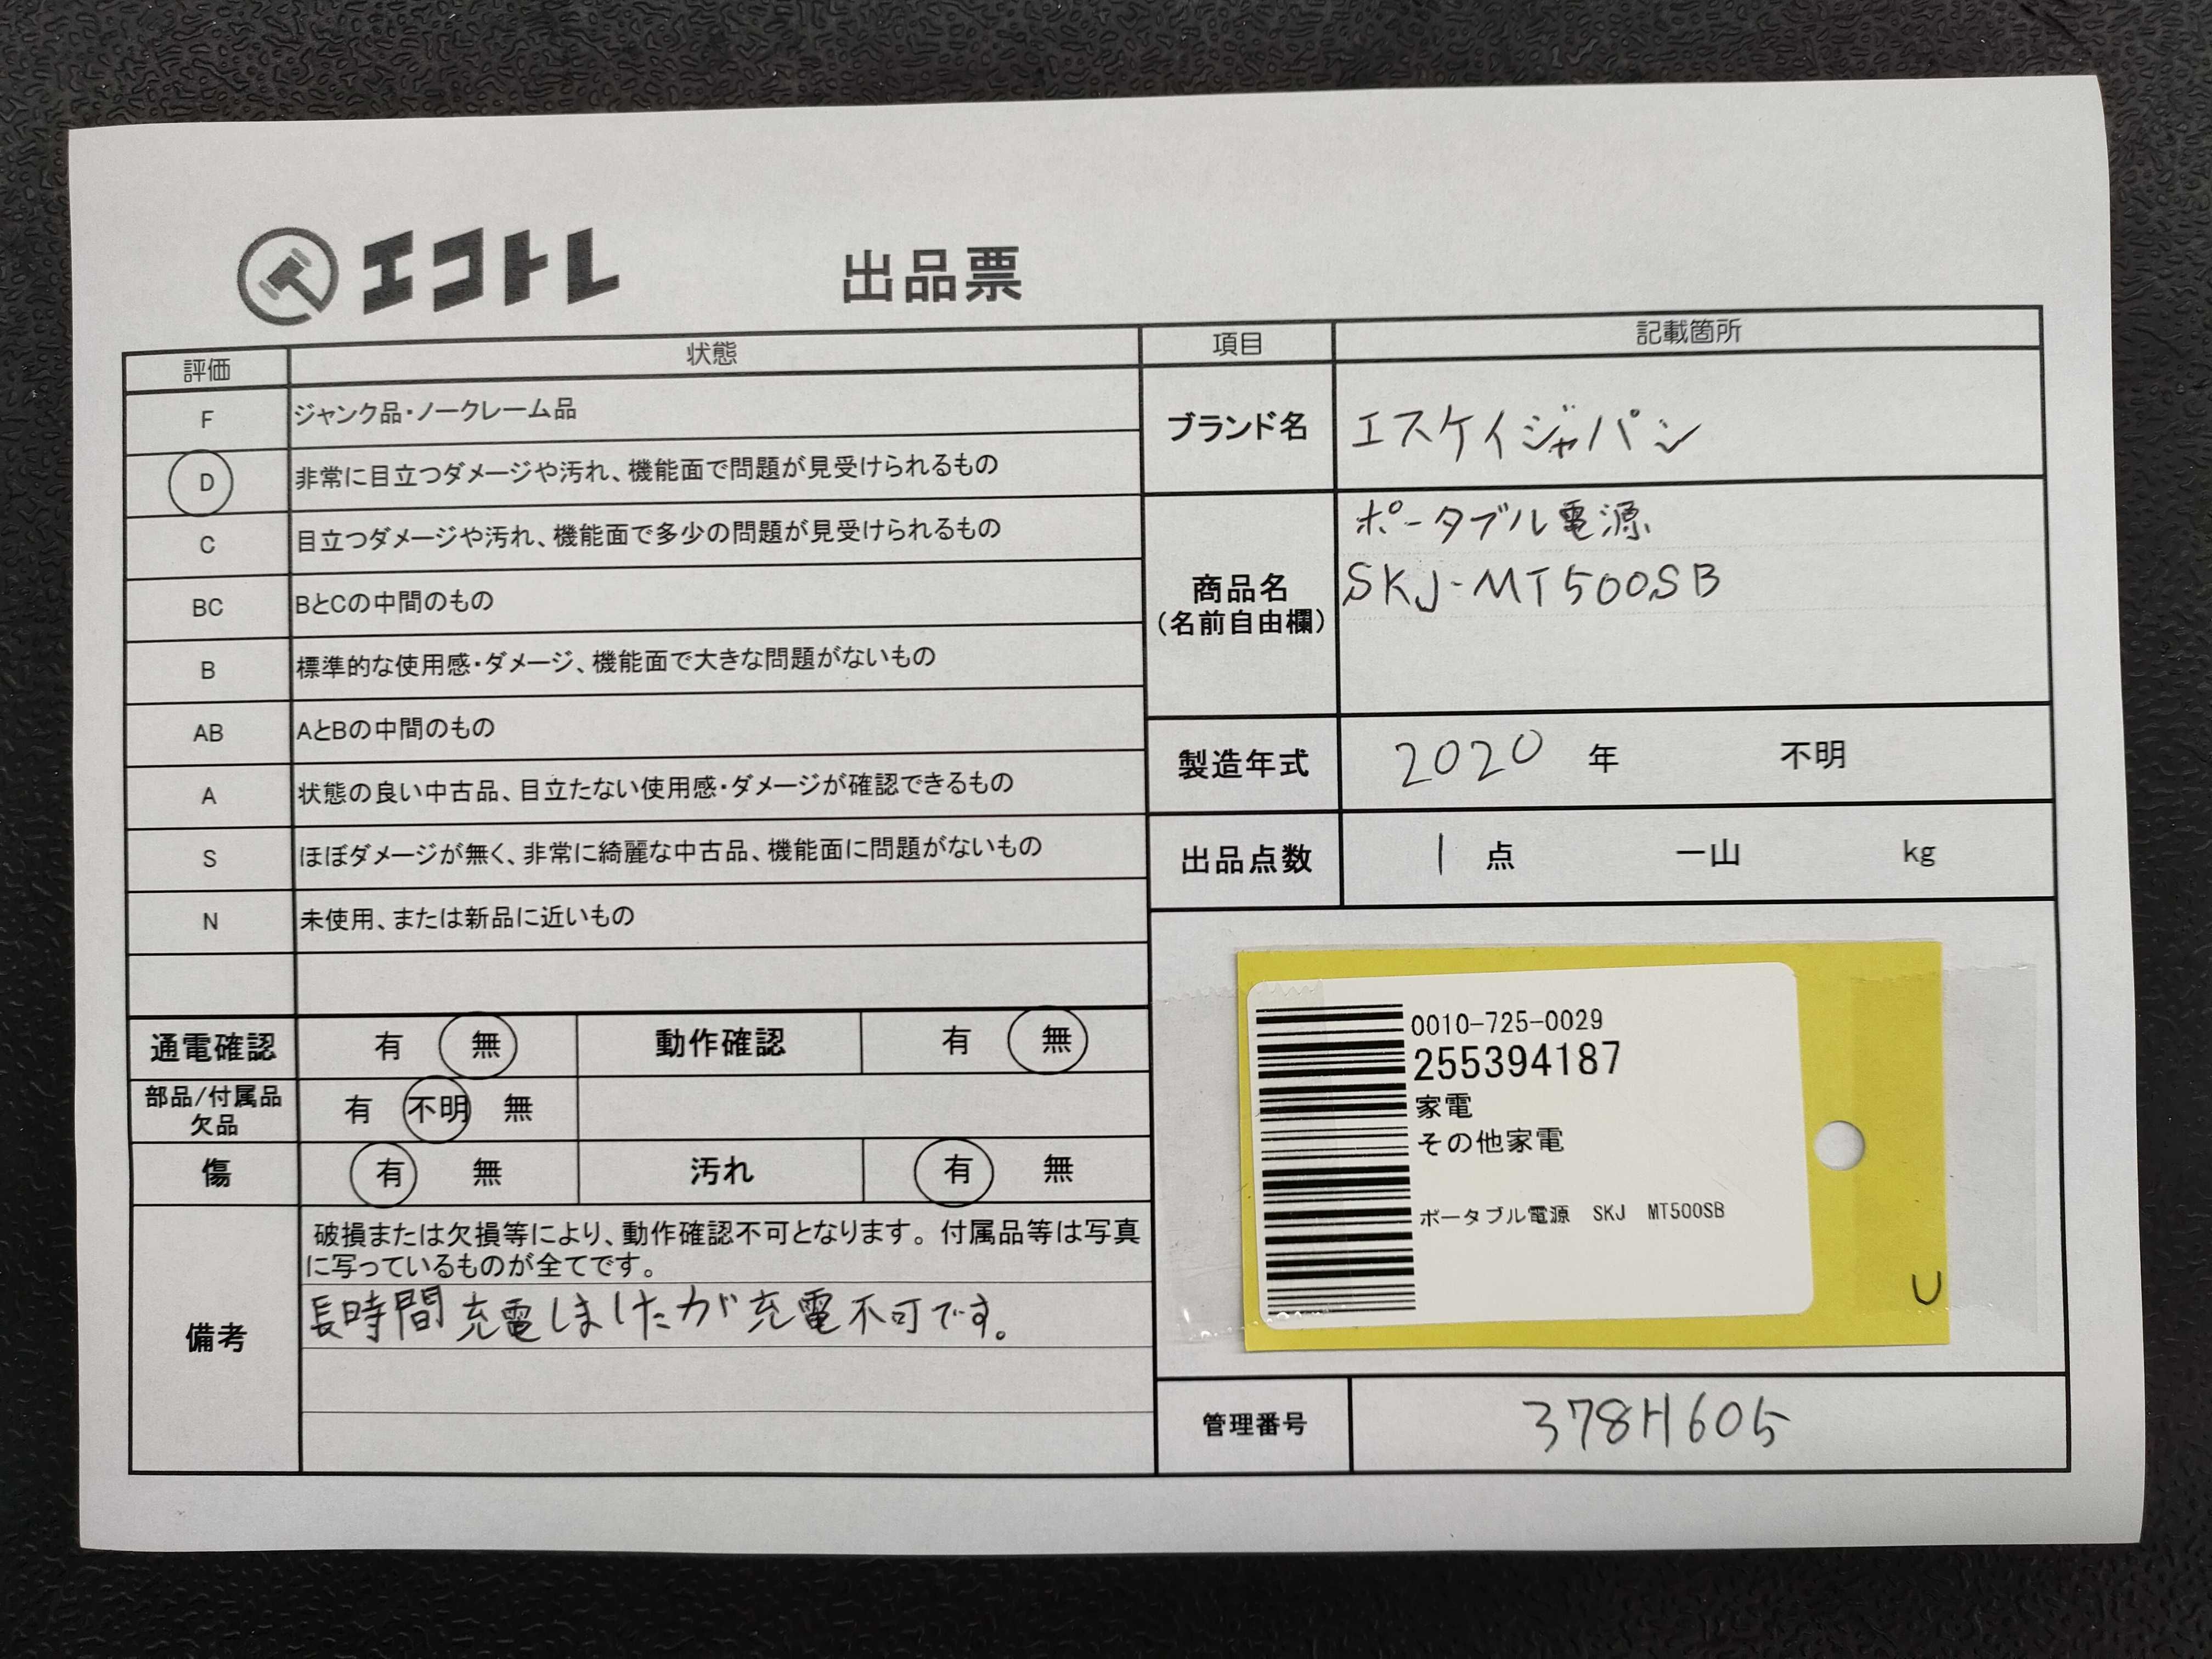 エコトレ 出品票
評価 状態
F ジャンク品・ノークレーム品
D 非常に目立つダメージや汚れ、機能面で問題が見受けられるもの
C 目立つダメージや汚れ、機能面で多少の問題が見受けられるもの
BC BとCの中間のもの
B 標準的な使用感・ダメージ、機能面で大きな問題がないもの
AB AとBの中間のもの
A 状態の良い中古品、目立たない使用感・ダメージが確認できるもの
S ほぼダメージが無く、非常に綺麗な中古品、機能面に問題がないもの
N 未使用、または新品に近いもの
通電確認 有 無 動作確認 有 無
部品/付属品
欠品 有 不明 無
傷 有 無 汚れ 有 無
備考
破損または欠損等により、動作確認不可となります。付属品等は写真
に写っているものが全てです。
長時間充電しましたが充電不可です。
項目 記載箇所
ブランド名 エスケイジャパン
商品名
(名前自由欄)
ポータブル電源
SKJ-MT500SB
製造年式 2020 年 不明
出品点数 1 点 一山 kg
0010-725-0029
255394187
家電
その他家電
ポータブル電源 SKJ MT500SB
U
管理番号 378H605